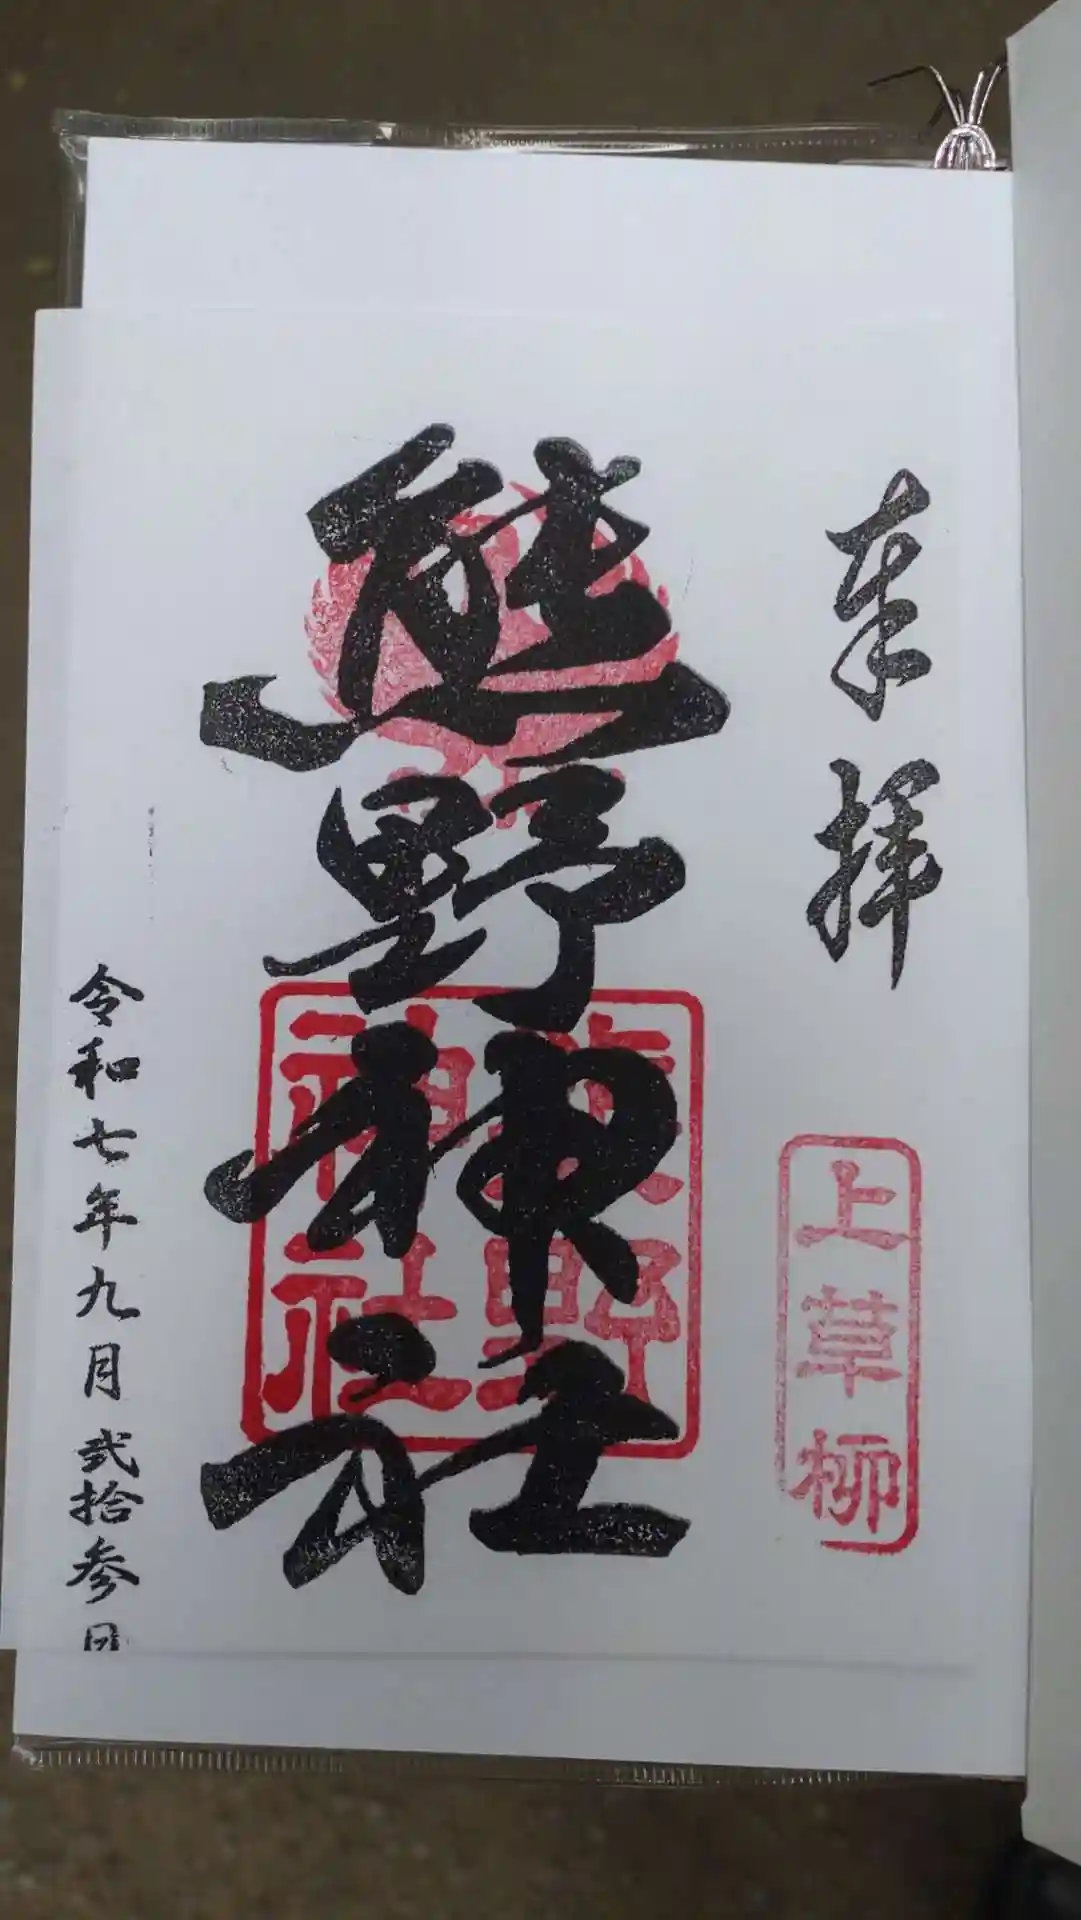 奉拝
上草柳
熊野神社
熊野
神社
令和七年九月弐拾参日